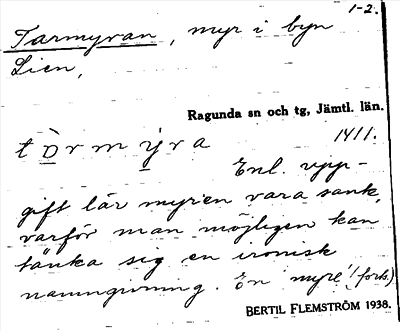 1-2.
Tarmyran, myr i byn
Lien,
Ragunda sn och tg, Jämtl. län.
tòrmýra 1411.
Enl. upp-
gift lär myren vara sank,
varför man möjligen kan
tänka sig en ironisk
namngivning. En myre! (forts.)
BERTIL FLEMSTRÖM 1938.